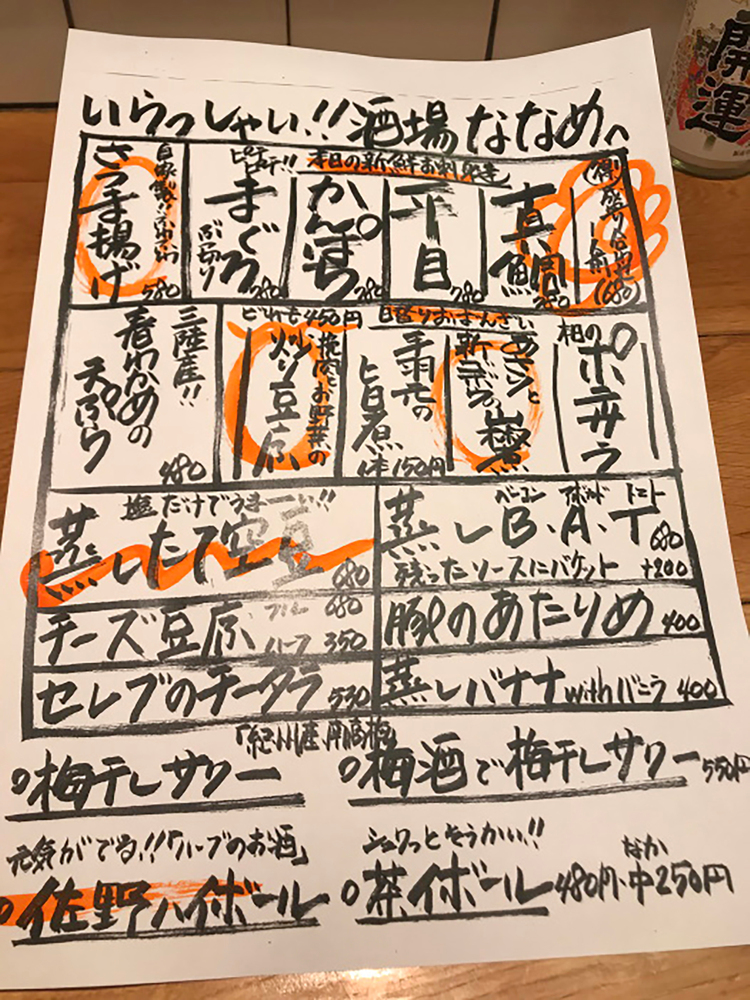 いらっしゃい!!酒場ななめへ
本日の新鮮お刺身達
(得)盛り合わせ
一人前(680)
真鯛
平目
780
かんぱち
780
ピチピチ!!
まぐろ
ぶつ切り
780
自家製
さつま揚げ
580
どれも450円
日替りおばんざい
ポテサラ
あさりと
手羽元の
旨煮
1本150円
挽肉とお野菜の
炒り豆腐
三陸産!!
春わかめの
天ぷら
480
塩だけでうまーい!!
蒸したて空豆
680
ベーコン アボカド トマト
蒸しB.A.T
680
残ったソースにバケット +200
チーズ豆腐
フル 680
ハーフ 350
豚のあたりめ 400
セレブのチータラ 530
蒸しバナナwithバニラ 400
「紀州産南高梅」
梅干しサワー
梅酒で梅干しサワー 550円
元気がでる!!「ハーブのお酒」
佐野ハイボール
シュワっとそうかい!!
茶イボール 480円・中250円
なか
開運